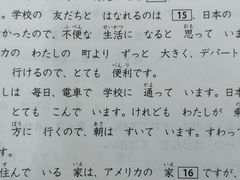 。学校の 友だちと はなれるのは 15 、日本の
かったので、不便な 生活に なると 思って いま
カの わたしの 町より ずっと 大きく、デパート
行けるので、とても 便利です。
しは 毎日、電車で 学校に 通って います。日
とても こんで います。けれども わたしが 乗
方に 行くので、朝は すいて います。すわっ
す。
住んで いる 家は、アメリカの 家 16 ですが、